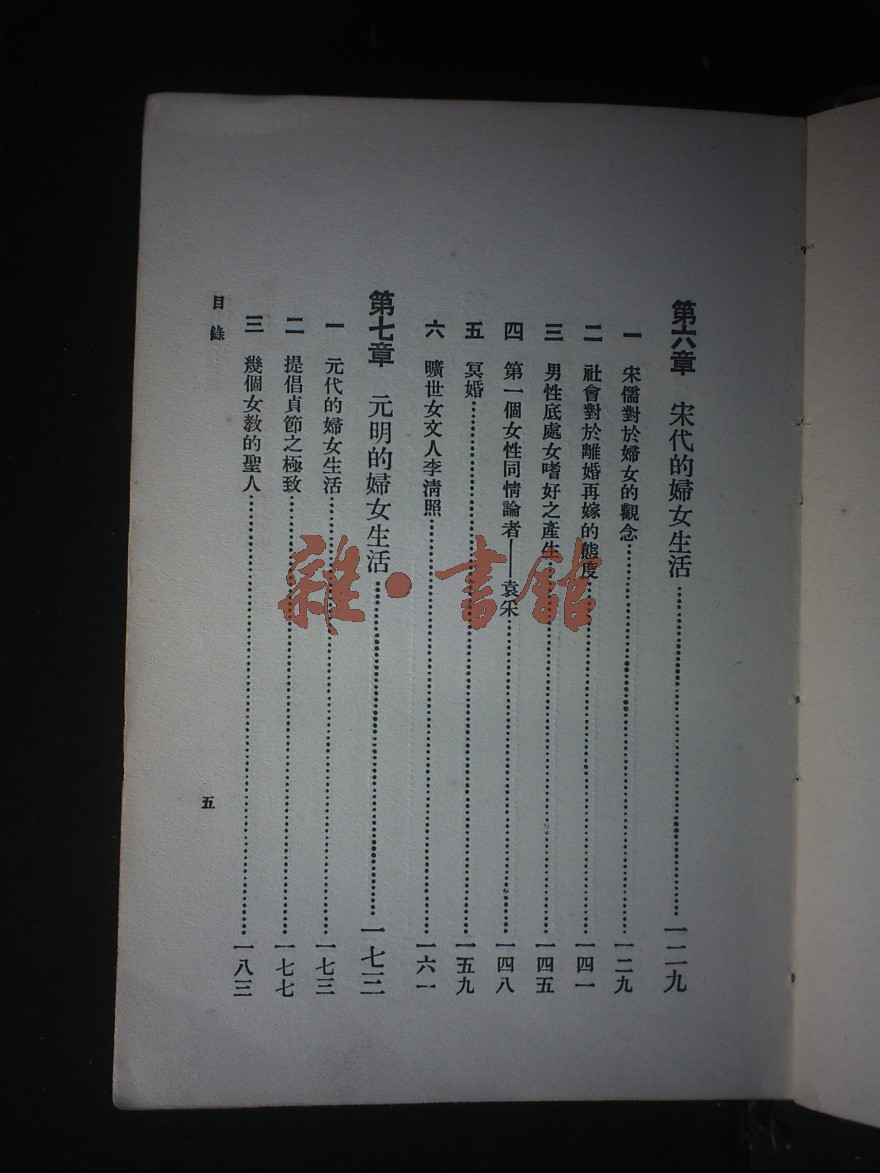 第六章 宋代的婦女生活……一二九
一 宋儒對於婦女的觀念……一二九
二 社會對於離婚再嫁的態度……一四一
三 男性底處女嗜好之產生……一四五
四 第一個女性同情論者——袁采……一四八
五 冥婚……一五九
六 曠世女文人李清照……一六一
第七章 元明的婦女生活……一七三
一 元代的婦女生活……一七三
二 提倡貞節之極致……一七七
三 幾個女教的聖人……一八三
目錄
五
雜·書館